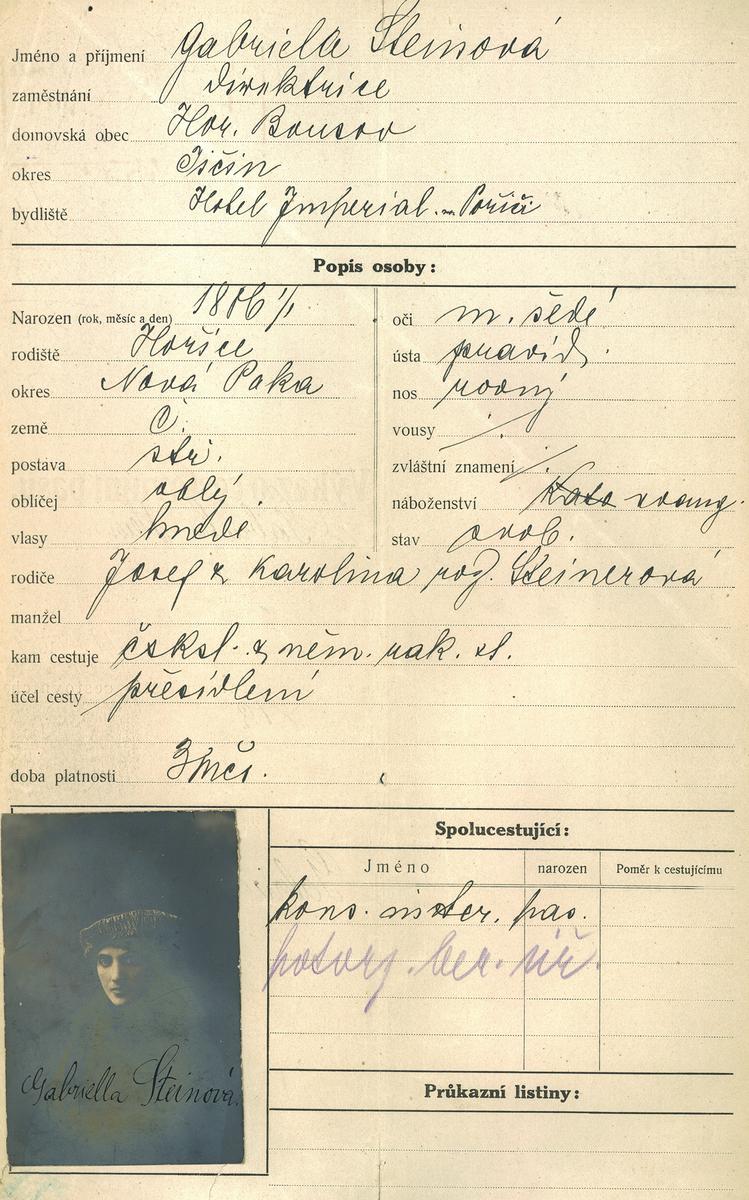 Jméno a příjmení Gabriela Steinová
zaměstnání direktrice
domovská obec Hor. Bousov
okres Jičín
bydliště Hotel Imperial. Poříčí
Popis osoby:
Narozen (rok, měsíc a den)
rodiště Hořice
okres Nová Paka
země Č.
postava stř.
obličej oblý.
vlasy hnědé
oči m. šedé
ústa pravid.
nos rovný
vousy /.
zvláštní znamení /.
náboženství evang.
stav svob.
rodiče Josef & Karolina roz. Steinerová
manžel
kam cestuje čsksl. & něm. rak. st.
účel cesty přesídlení
doba platnosti 3 měs.
Spolucestující:
Jméno narozen Poměr k cestujícímu
kons. inster. pas.
potvrz. ber. úř.
Průkazní listiny:
Gabriella Steinová